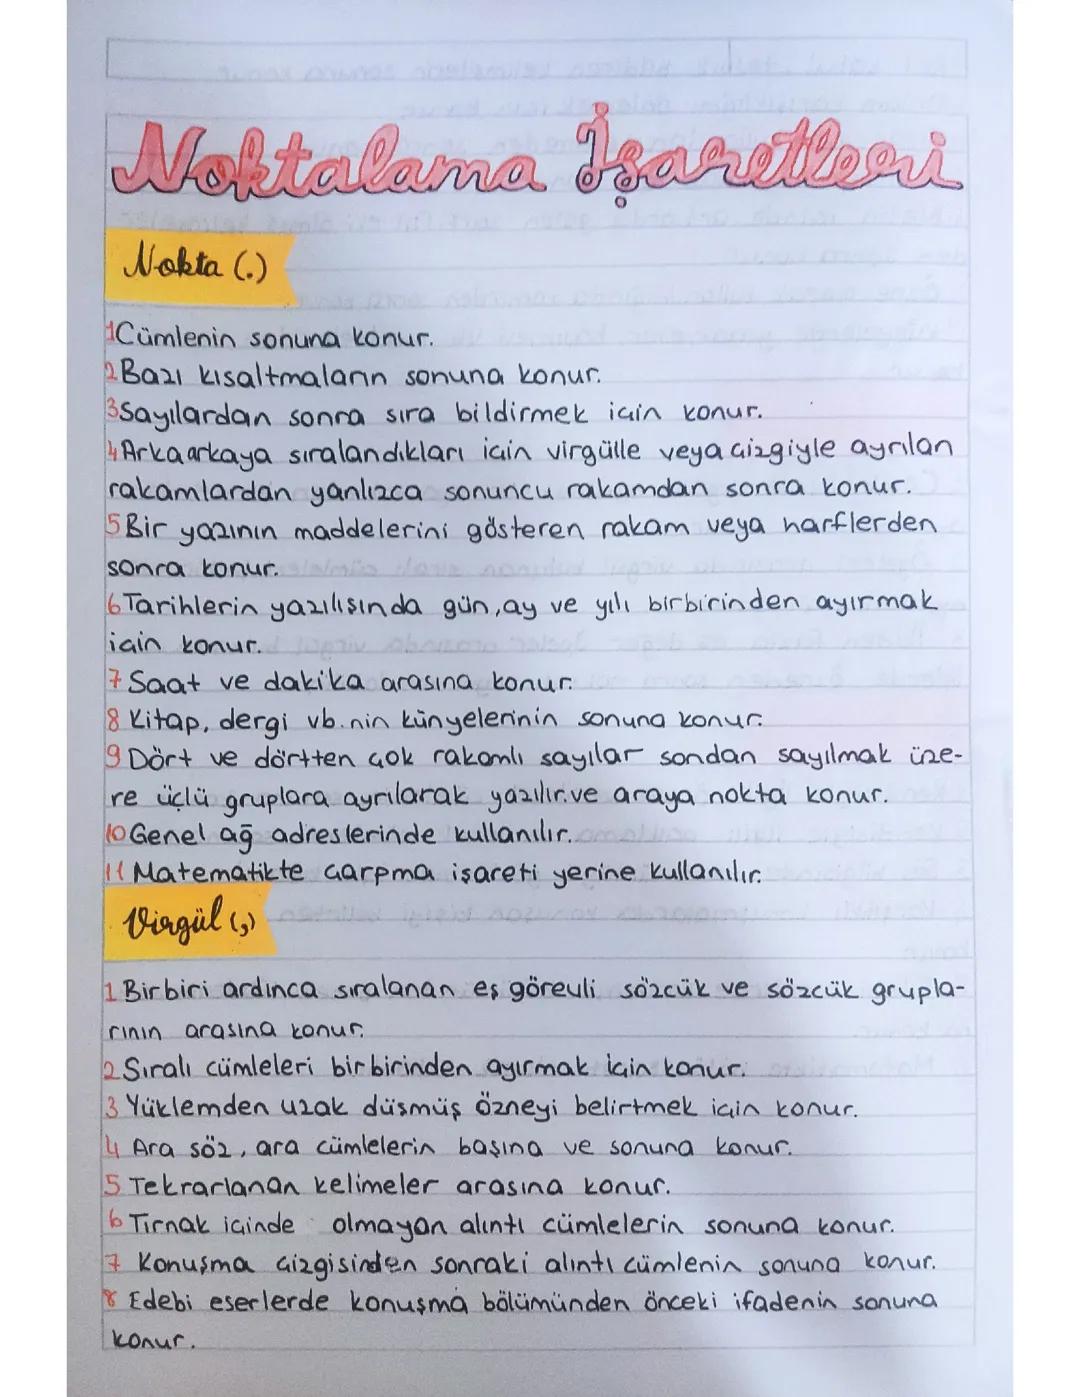 Noktalama İşaretleri
Nokta (.)
1 Cümlenin sonuna konur.
2 Bazı kısaltmaların sonuna konur.
3 Sayılardan sonra sıra bildirmek için konur.
4 Arka arkaya sıralandıkları için virgülle veya çizgiyle ayrılan
rakamlardan yanlızca sonuncu rakamdan sonra konur.
5 Bir yazının maddelerini gösteren rakam veya harflerden
sonra konur.
6 Tarihlerin yazılışında gün, ay ve yılı birbirinden ayırmak
için konur.
7 Saat ve dakika arasına konur.
8 Kitap, dergi vb. nin künyelerinin sonuna konur.
9 Dört ve dörtten çok rakamlı sayılar sondan sayılmak üze-
re üçlü gruplara ayrılarak yazılır.ve araya nokta konur.
10 Genel ağ adreslerinde kullanılır.
11 Matematikte çarpma işareti yerine kullanılır.
Virgül (,)
1 Birbiri ardınca sıralanan eş görevli sözcük ve sözcük grupla-
rının arasına konur.
2 Sıralı cümleleri birbirinden ayırmak için konur.
3 Yüklemden uzak düşmüş özneyi belirtmek için konur.
4 Ara söz, ara cümlelerin başına ve sonuna konur.
5 Tekrarlanan kelimeler arasına konur.
6 Tırnak içinde olmayan alıntı cümlelerin sonuna konur.
7 Konuşma çizgisinden sonraki alıntı cümlenin sonuna konur.
8 Edebi eserlerde konuşma bölümünden önceki ifadenin sonuna
konur.